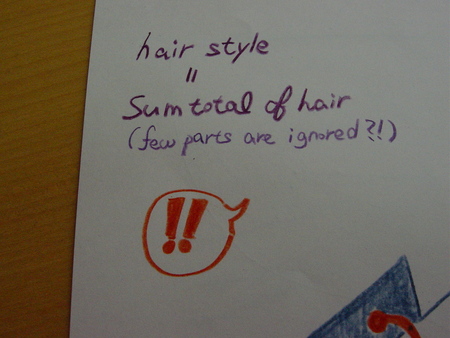 hair style
=
Sum total of hair
(few parts are ignored?!)
!!